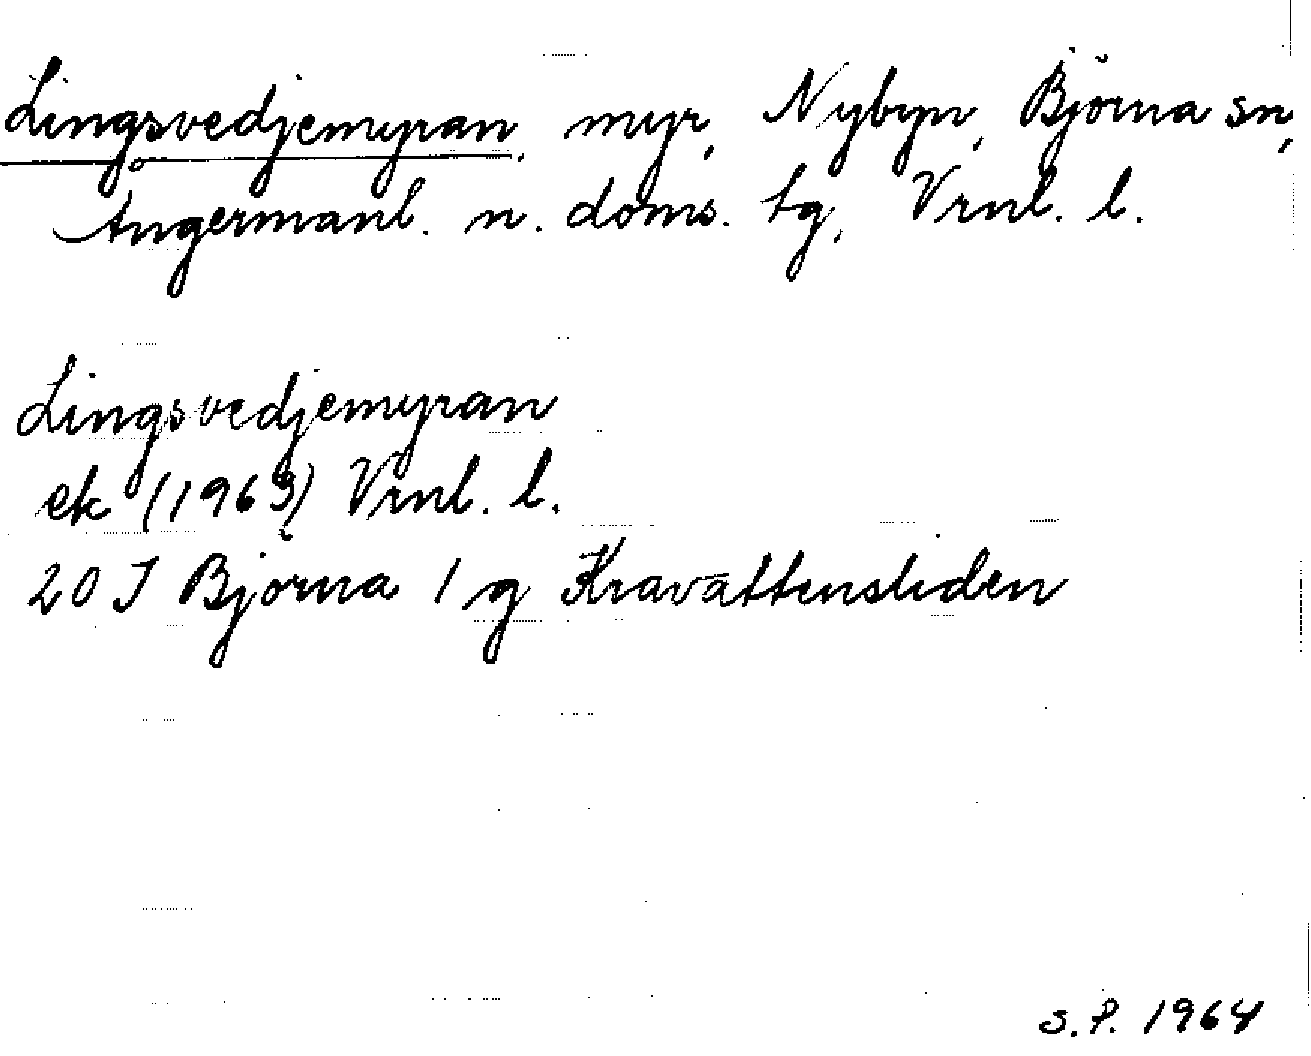 Lingsvedjemyran, myr, Nybyn, Björna sn,
Ångermanl. n. doms. tg, Vrnl. l.
Lingsvedjemyran
ek (1963) Vrnl. l.
20 J Björna 1 g Kravattensliden
S.P. 1964